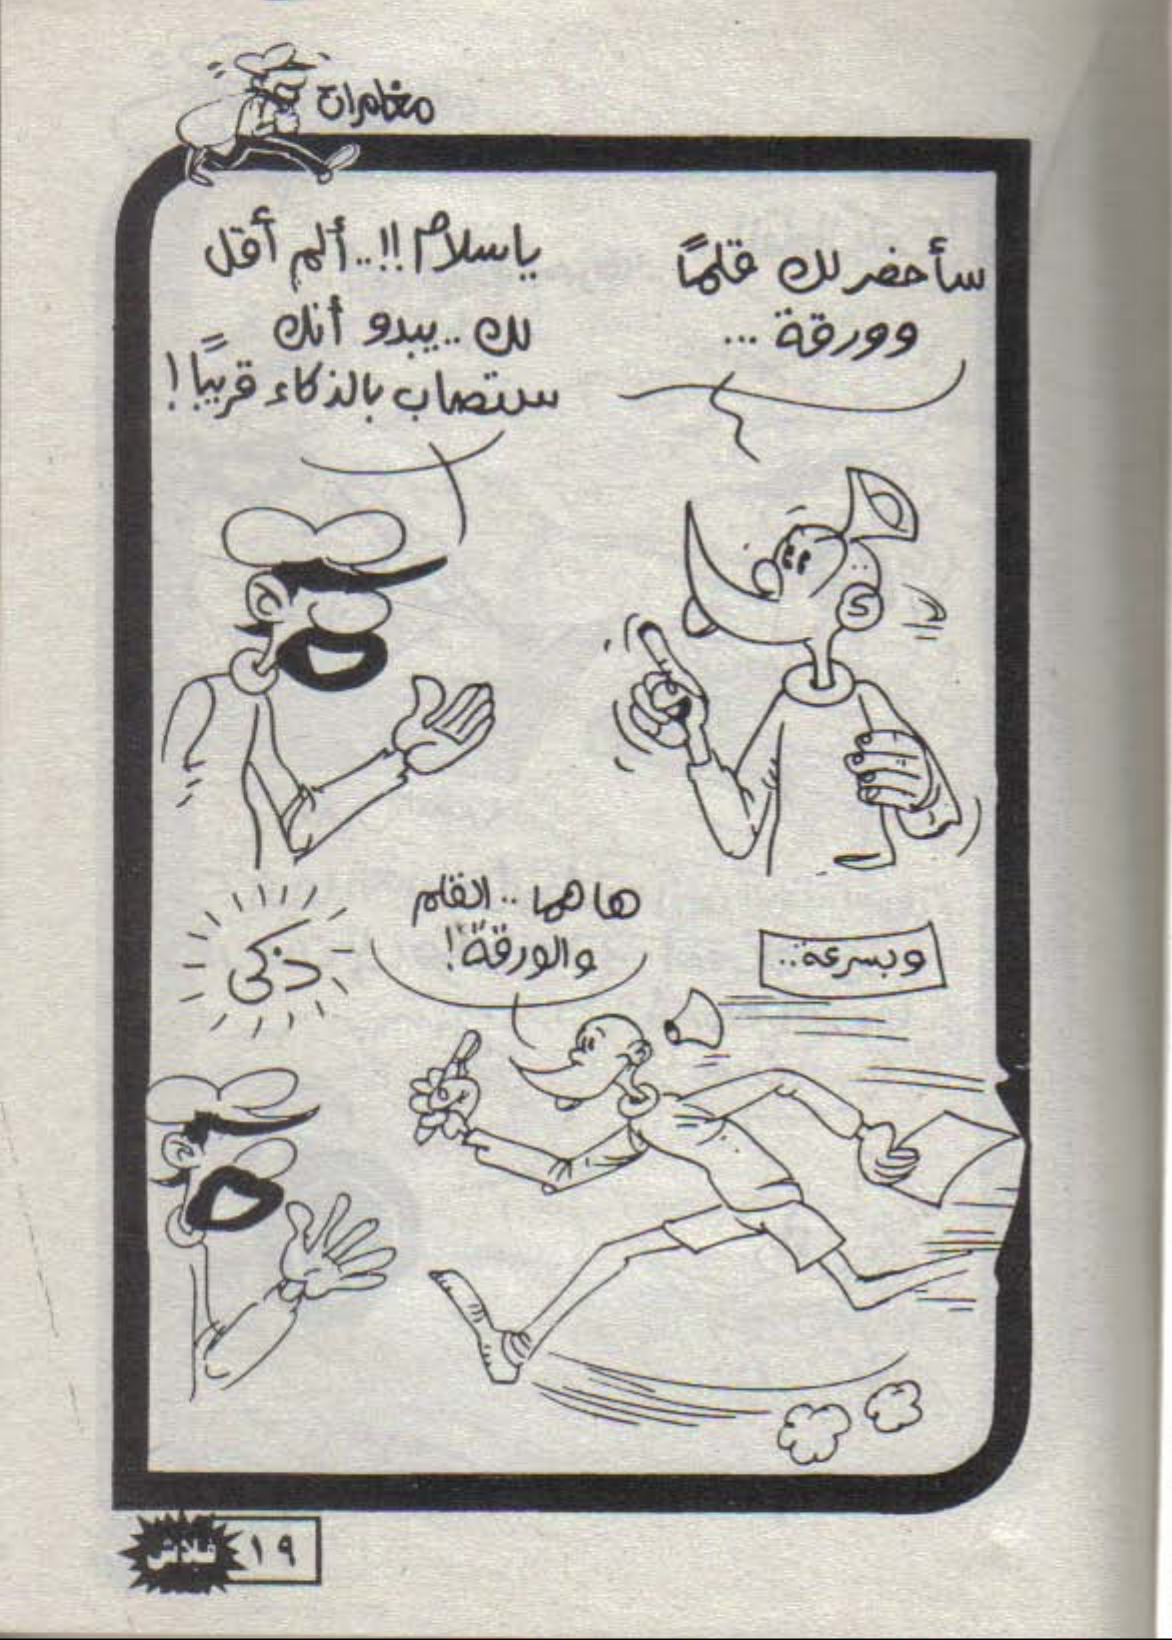 مغامرات
سأحضر لك قلمًا
وورقة ...
ياسلام !!.. ألم أقل
لك .. يبدو أنك
ستصاب بالذكاء قريبًا !
وبسرعة ..
هاهما .. القلم
والورقة !
ذكى
١٩
فلاش